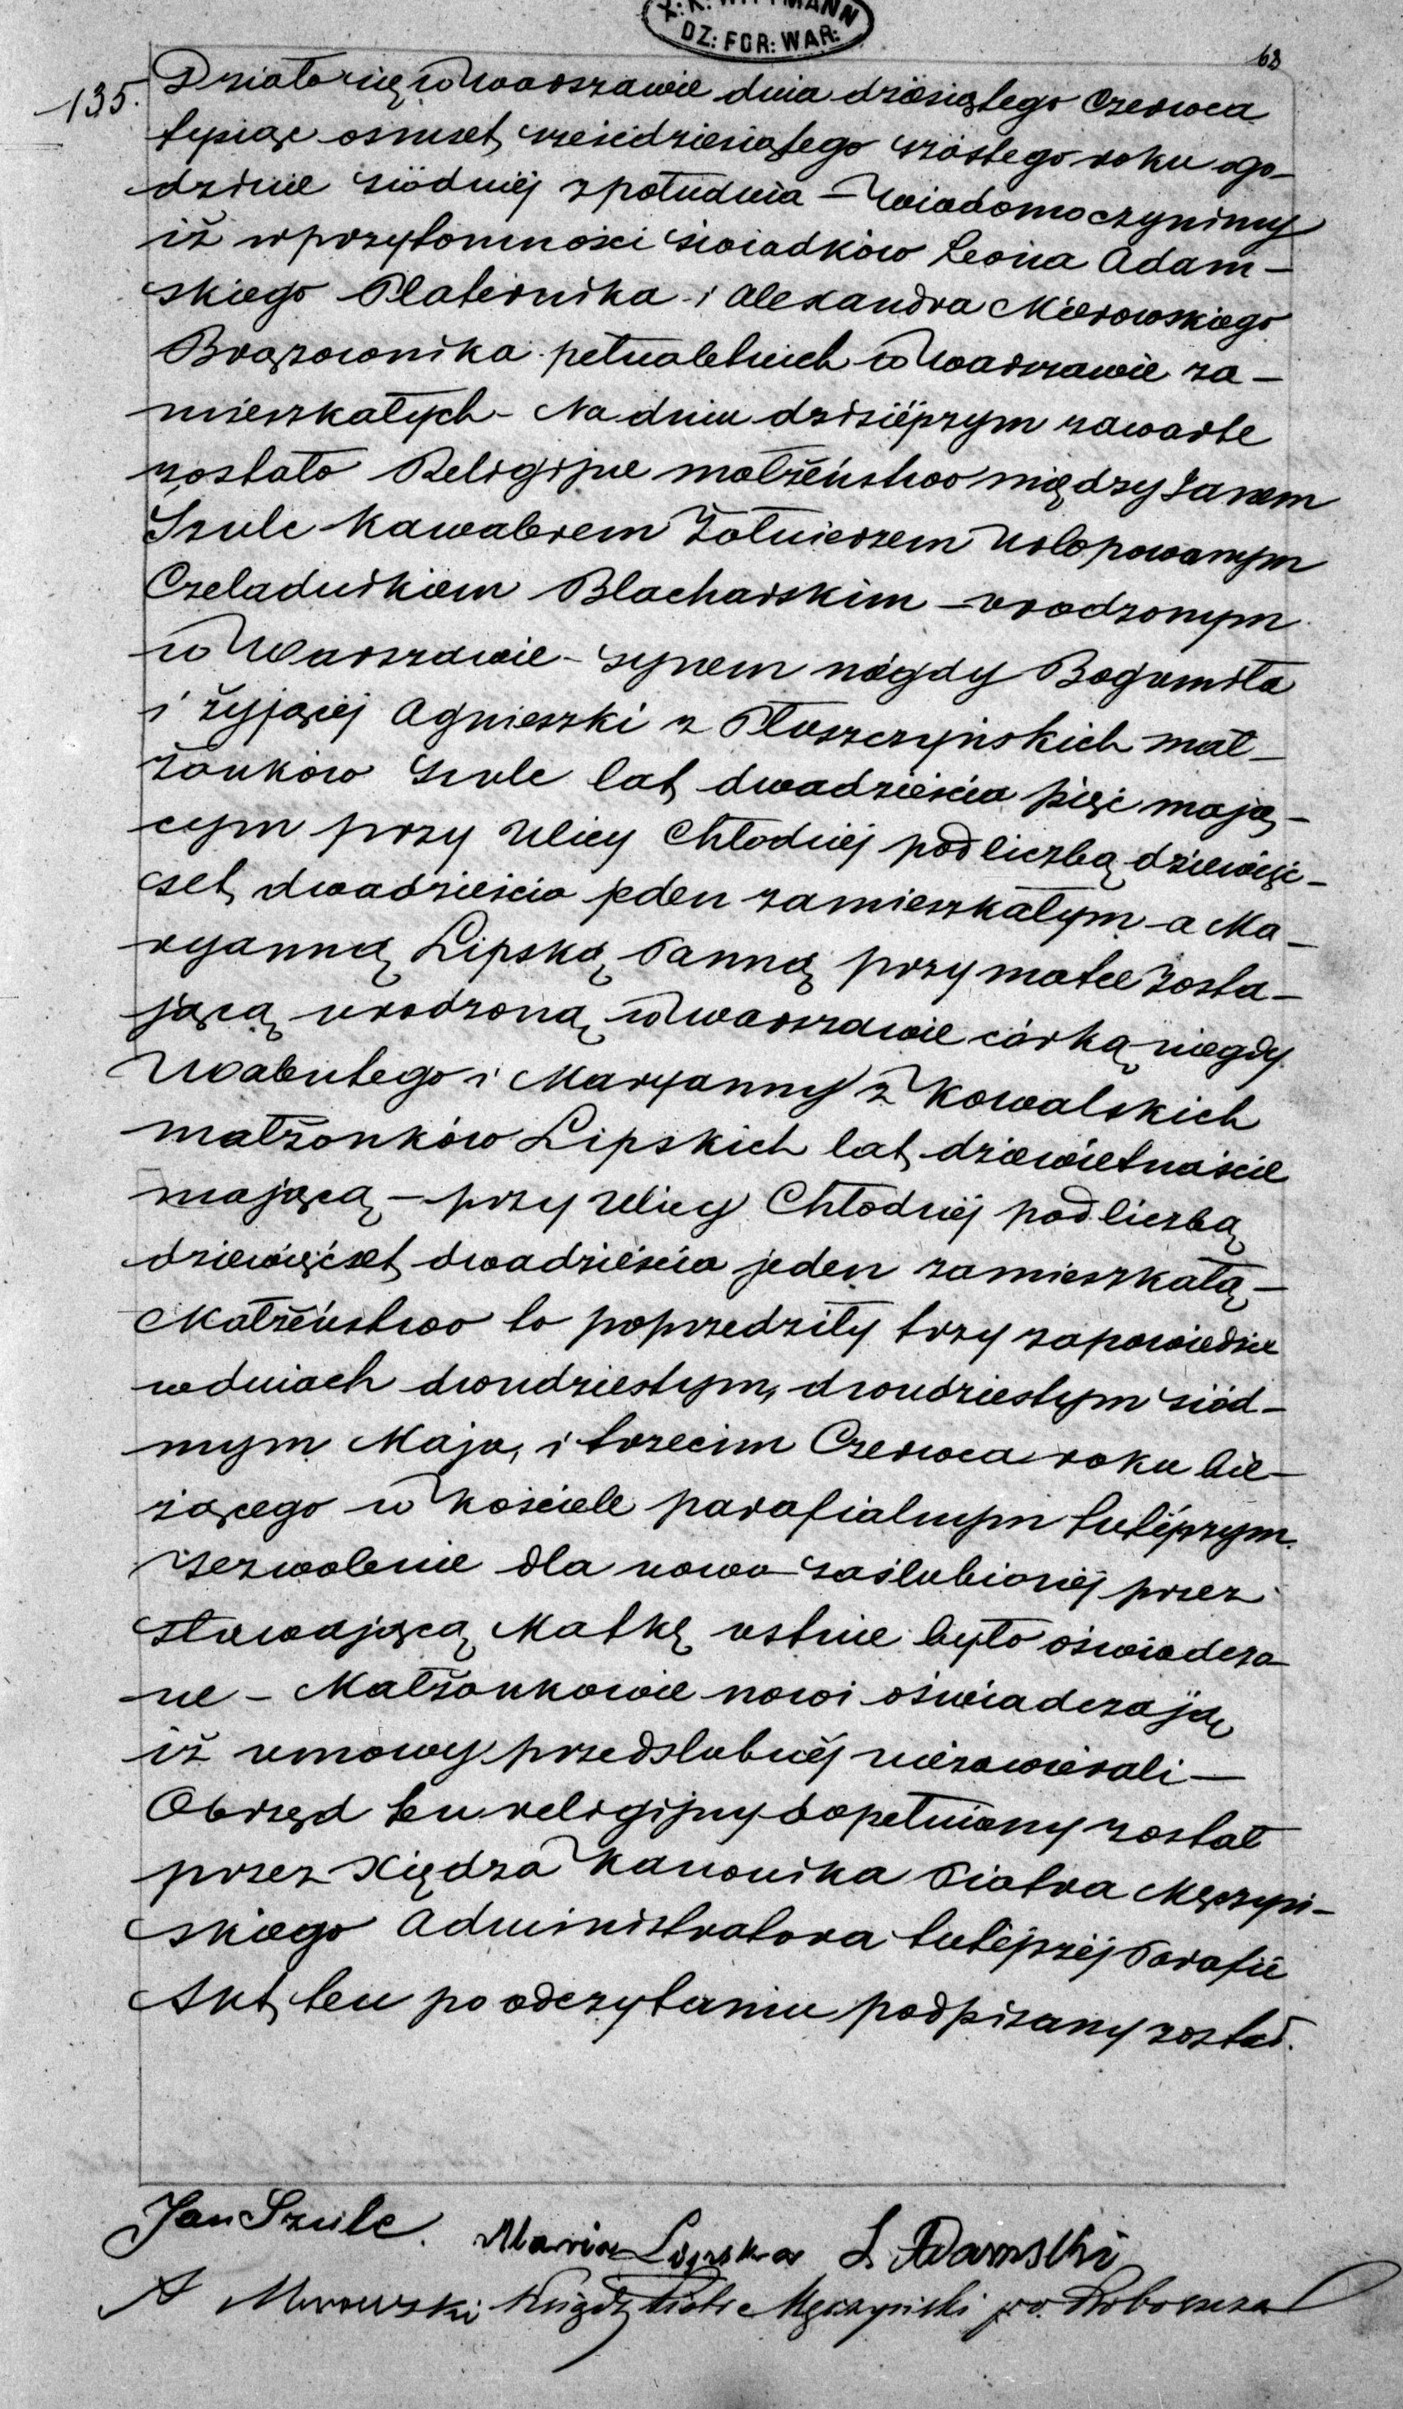 X: K: WITTMANN
DZ: FOR: WAR:
68
135. Działo się w Warszawie dnia dziesiątego Czerwca
tysiąc osmset sześcdziesiątego szóstego roku o go-
dzinie siódmej z południa – Wiadomo czynimy
iż w przytomności świadków Leona Adam-
skiego Platernika i Alexandra Mierowskiego
Brązownika pełnoletnich w Warszawie za-
mieszkałych – Na dniu dzisiéjszym zawarte
zostało Religijne małżeństwo między Janem
Szulc Kawalerem Żołnierzem Urlopowanym
Czeladnikiem Blacharskim – urodzonym
w Warszawie – synem niegdy Bogumiła
i żyjącéj Agnieszki z Płuszczyńskich mał-
żonków Szulc lat dwadzieścia pięć mają-
cym przy Ulicy Chłodnéj pod liczbą dziewięć-
set dwadzieścia jeden zamieszkałym a Ma-
ryanną Lipską Panną przy matce zosta-
jącą urodzoną w Warszawie córką niegdy
Walentego i Maryanny z Kowalskich
małżonków Lipskich lat dziewiętnaście
mającą – przy Ulicy Chłodnéj pod liczbą
dziewięćset dwadzieścia jeden zamieszkałą –
Małżeństwo to poprzedziły trzy zapowiedzie
w dniach dwudziestym, dwudziestym siód-
mym Maja, i trzecim Czerwca roku bie-
żącego w Kościele parafialnym tutéjszym.
Zezwolenie dla nowo zaślubionéj przez
stawającą Matkę ustnie było oświadczo
ne – Małżonkowie nowi oświadczają
iż umowy przedślubnéj niezawierali –
Obrzęd ten religijny dopełniony został
przez Xiędza Kanonika Piotra Męczyń-
skiego Administratora tutéjszéj Parafii
Akt ten po odczytaniu podpisany został.
Jan Szulc. Maria Lipska L. Adamski
A Mierowski Ksiądz Piotr Męczyński